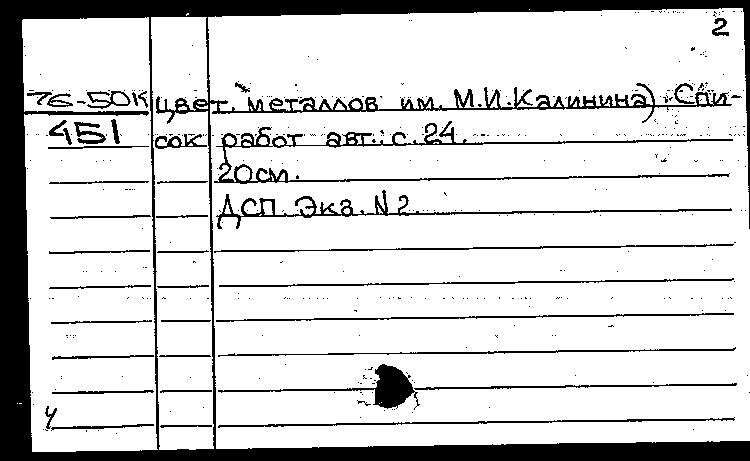 2
76-50К цвет. металлов им. М.И.Калинина) Спи-
451 сок работ авт.: с. 24.
20см.
ДСП. Экз. N2.